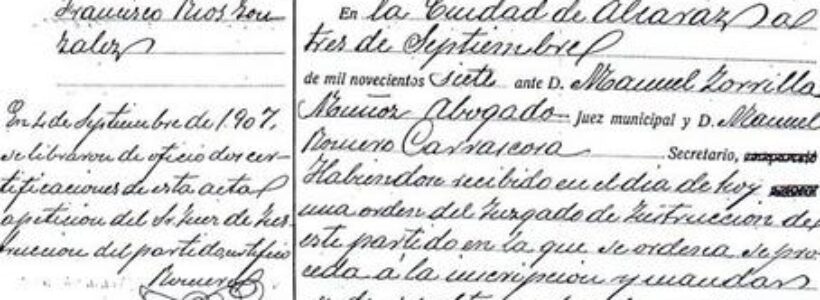 Francisco Rios Gon
zalez
En 4 de Septiembre de 1907,
se libraron de oficio dos cer-
tificaciones de esta acta
a peticion del Sr. Juez de Ins-
truccion del partido, certifico
Romero
En la Ciudad de Alcaraz a
tres de Septiembre
de mil novecientos siete ante D. Manuel Zorrilla
Muñoz Abogado Juez municipal y D. Manuel
Romero Carrascosa Secretario,
Habiendose recibido en el dia de hoy
una orden del Juzgado de Instruccion de
este partido en la que se ordena se pro
ceda á la inscripcion y mandar